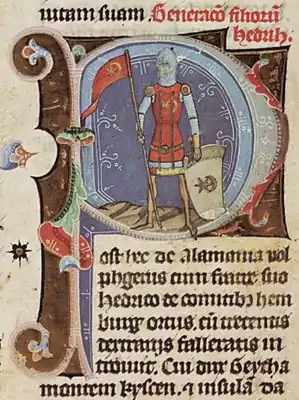 iutam suam. Generacō filiorū
hedrih.
Post hec de Alamania vol
phgerius cum fratre suo
hedrico de comitibꝫ hem
burg ortus, cū trecentis
dextrariis falleratis in
troiuit. Cui dux Geycha
montem kyscen. ⁊ insulā da